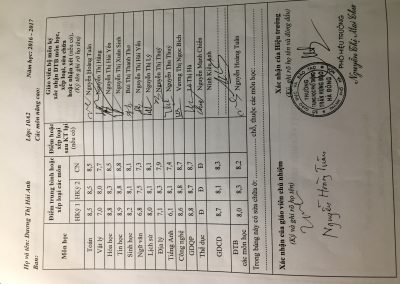 Họ và tên: Dương Thị Hải Anh Lớp: 10A2 Năm học: 2016 - 2017
Ban: Các môn nâng cao:
Môn học Điểm trung bình hoặc xếp loại các môn học Điểm hoặc xếp loại sau KT lại (nếu có) Giáo viên bộ môn ký xác nhận ĐTB môn học, xếp loại, sửa chữa hoặc KT lại (nếu có) (Ký và ghi rõ họ tên)
HKỳ 1 HKỳ 2 CN
Toán 8,5 8,5 8,5 Nguyễn Hoàng Tuân
Vật lý 8,0 Nguyễn Thị Hằng
Hóa học 8,8 8,3 8,5 Nguyễn Thị Hải Yến
Tin học 8,9 8,8 8,8 Nguyễn Thị Xuân Sinh
Sinh học 8,2 8,1 8,1 Bùi Thị Thanh
Ngữ văn 6,8 7,5 7,3 Nguyễn Thị Hải Yến
Lịch sử 8,0 8,1 8,1 Nguyễn Thị Lý
Địa lý 7,1 8,3 7,9 Nguyễn Thị Thuý
Tiếng Anh 7,4 Nguyễn Thu Thuỷ
Công nghệ 8,6 8,8 8,7 Vương Thị Ngọc Bích
GDQP 8,8 8,7 8,7 Lò Thị Hà
Thể dục Đ Đ Nguyễn Mạnh Chiến
GDCD 8,7 8,1 8,3 Ninh Kiều Anh
ĐTB các môn học 8,0 8,3 8,2 Nguyễn Hoàng Tuân
Trong bảng này có sửa chữa ở: chỗ, thuộc các môn học:
Xác nhận của giáo viên chủ nhiệm Xác nhận của Hiệu trưởng
(Ký và ghi rõ họ tên) (Ký, ghi rõ họ tên và đóng dấu)
Nguyễn Hoàng Tuân
PHÓ HIỆU TRƯỞNG